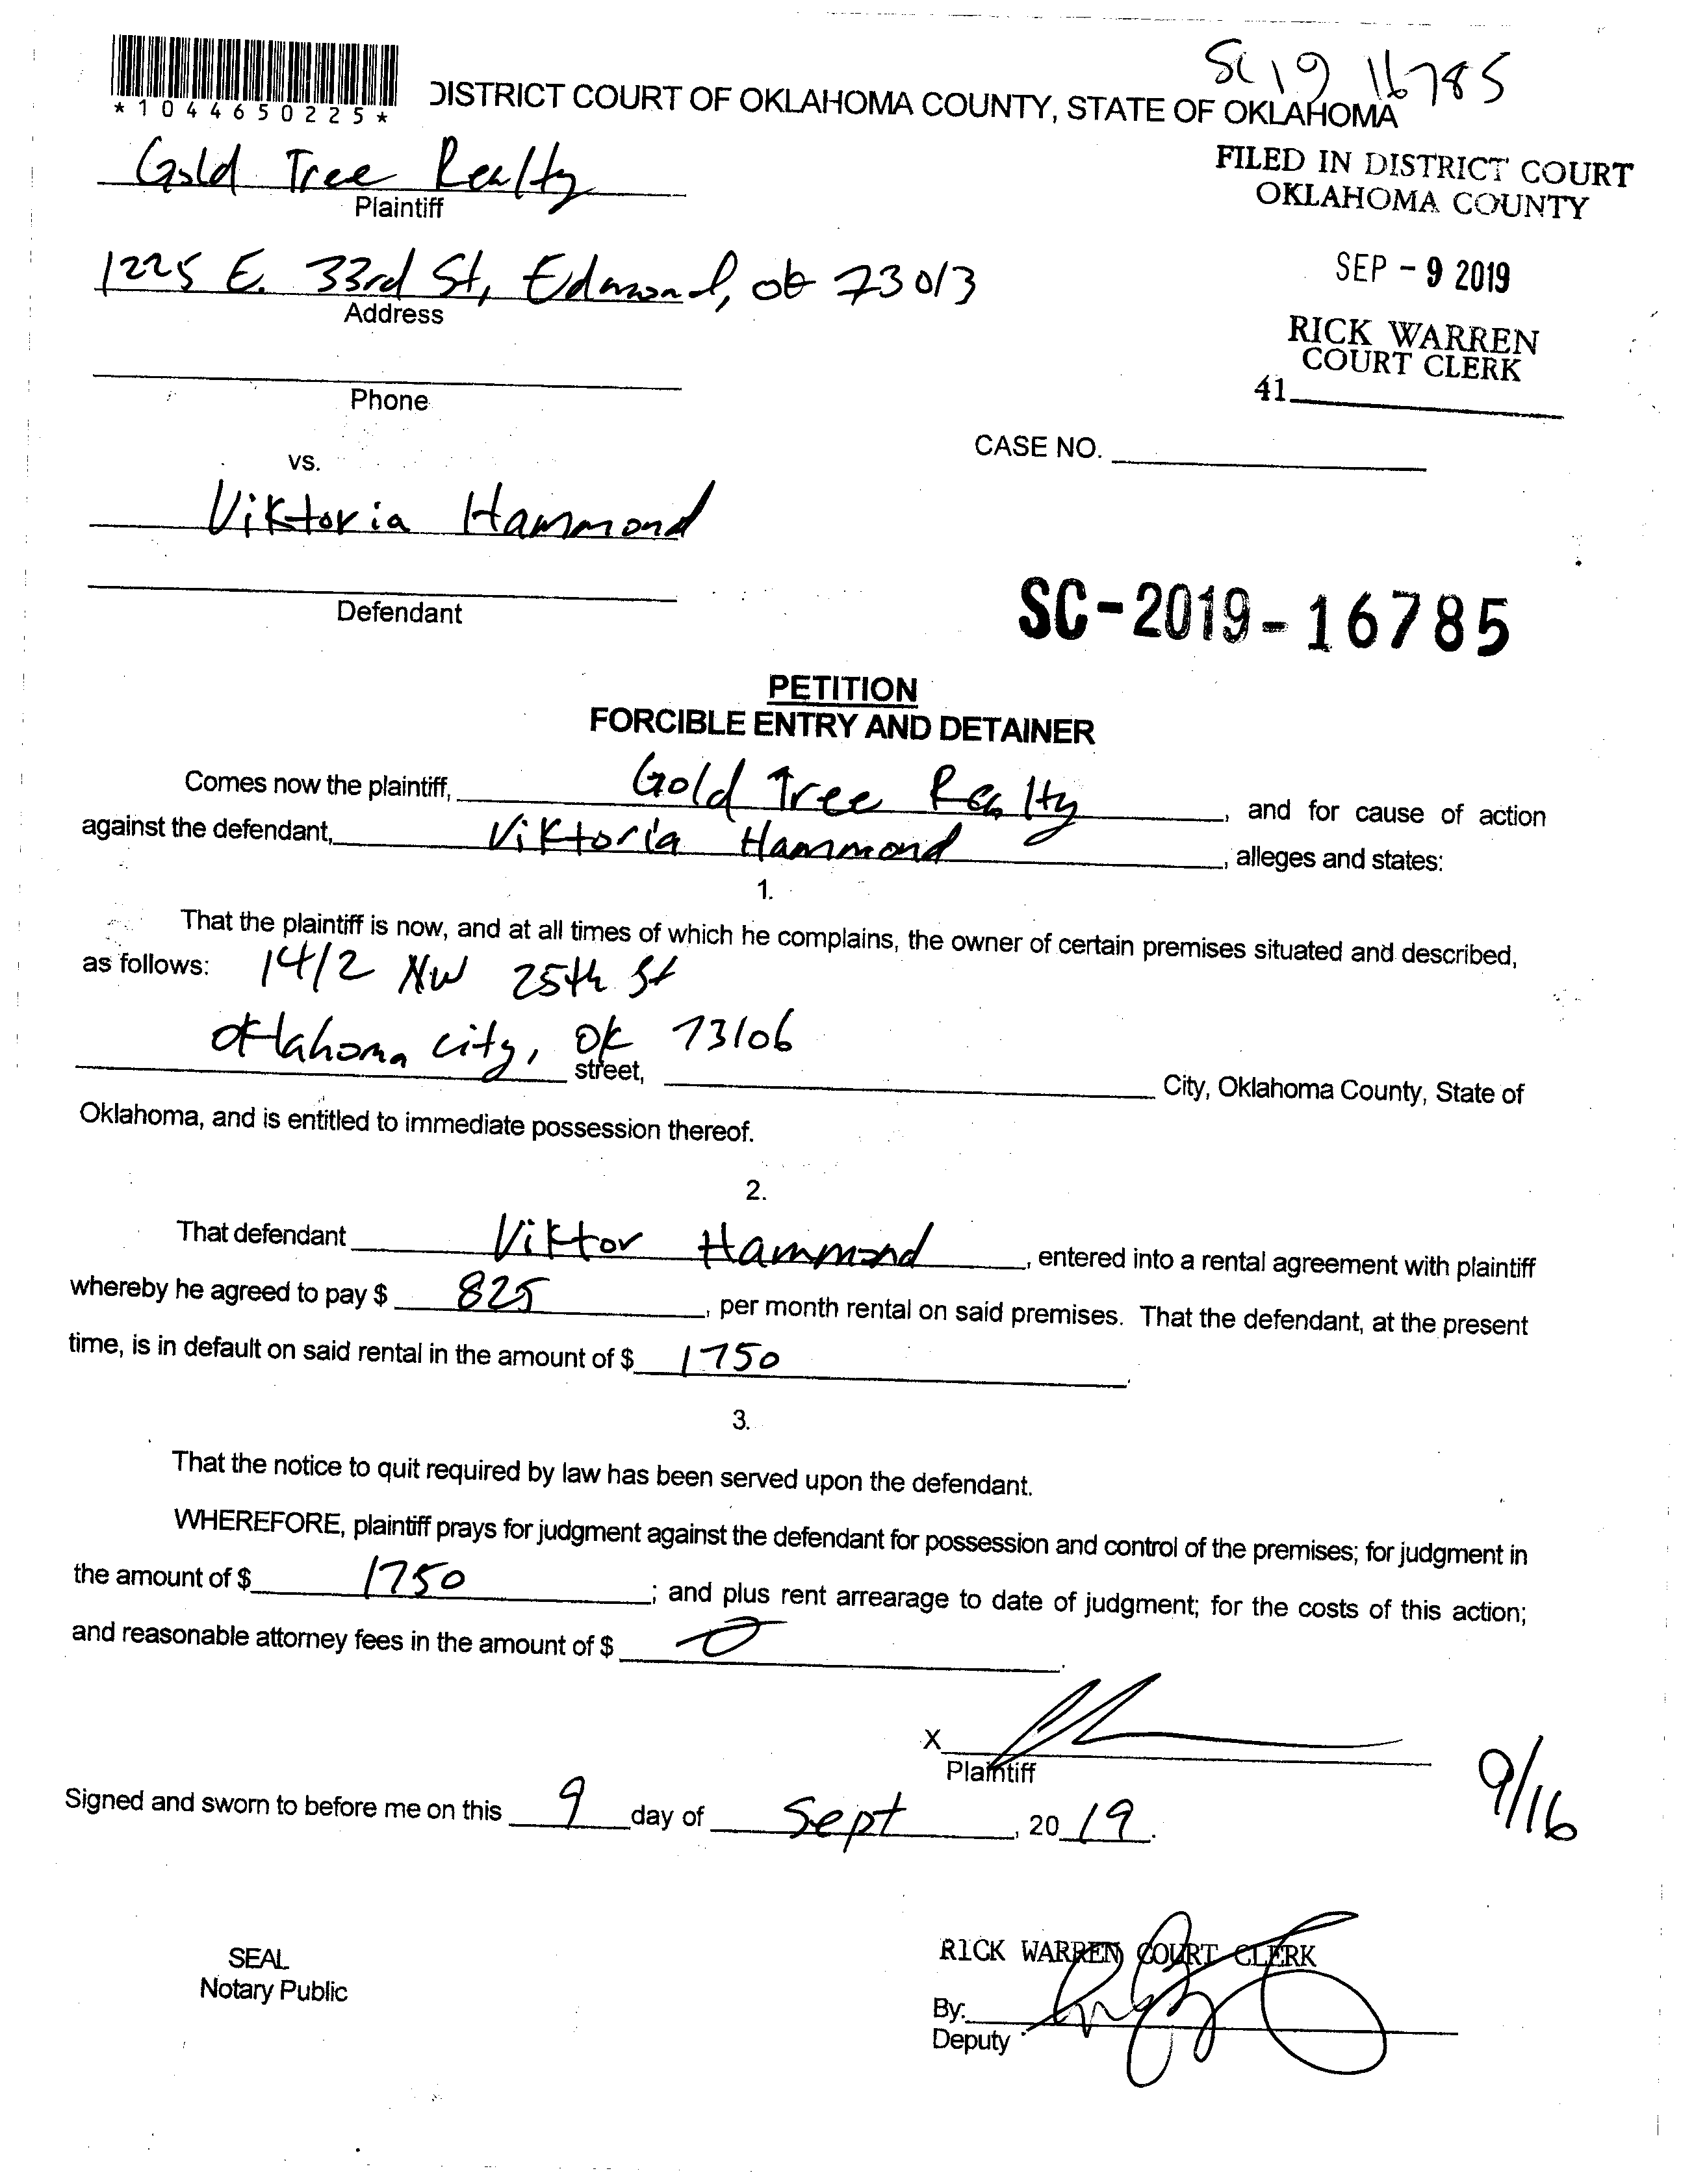 SC 19 16785
*1044650225*
DISTRICT COURT OF OKLAHOMA COUNTY, STATE OF OKLAHOMA
Gold Tree Realty
Plaintiff
FILED IN DISTRICT COURT
OKLAHOMA COUNTY
1225 E. 33rd St, Edmond, OK 73013
Address
SEP - 9 2019
RICK WARREN
COURT CLERK
41
Phone
CASE NO.
vs.
Viktoria Hammond
Defendant
SC-2019-16785
PETITION
FORCIBLE ENTRY AND DETAINER
Comes now the plaintiff, Gold Tree Realty, and for cause of action
against the defendant, Viktoria Hammond, alleges and states:
1.
That the plaintiff is now, and at all times of which he complains, the owner of certain premises situated and described,
as follows: 1412 NW 25th St
Oklahoma city, OK 73106
street, City, Oklahoma County, State of
Oklahoma, and is entitled to immediate possession thereof.
2.
That defendant Viktor Hammond, entered into a rental agreement with plaintiff
whereby he agreed to pay $ 825, per month rental on said premises. That the defendant, at the present
time, is in default on said rental in the amount of $ 1750.
3.
That the notice to quit required by law has been served upon the defendant.
WHEREFORE, plaintiff prays for judgment against the defendant for possession and control of the premises; for judgment in
the amount of $ 1750; and plus rent arrearage to date of judgment; for the costs of this action;
and reasonable attorney fees in the amount of $ 0.
X
Plaintiff
9/16
Signed and sworn to before me on this 9 day of Sept, 20 19.
SEAL
Notary Public
RICK WARREN COURT CLERK
By:
Deputy